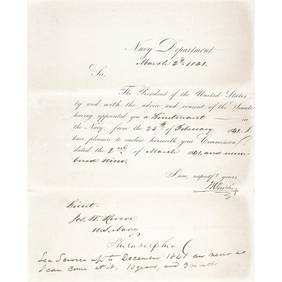 Navy Department
March 2d 1841.
Sir,
The President of the United States
by and with the advice and consent of the Senate
having appointed you a Lieutenant in
the Navy, from the 28th of February 1841, I
have pleasure to enclose herewith your Commission
dated the 2nd of March 1841, and num-
bered nine.
I am, respect'y yours
Lieut.
Jos. W. Revere
U.S. Navy
Philadelphia
Sea Service up to December 1841 as near as
I can come at it. 10 years and 3 months